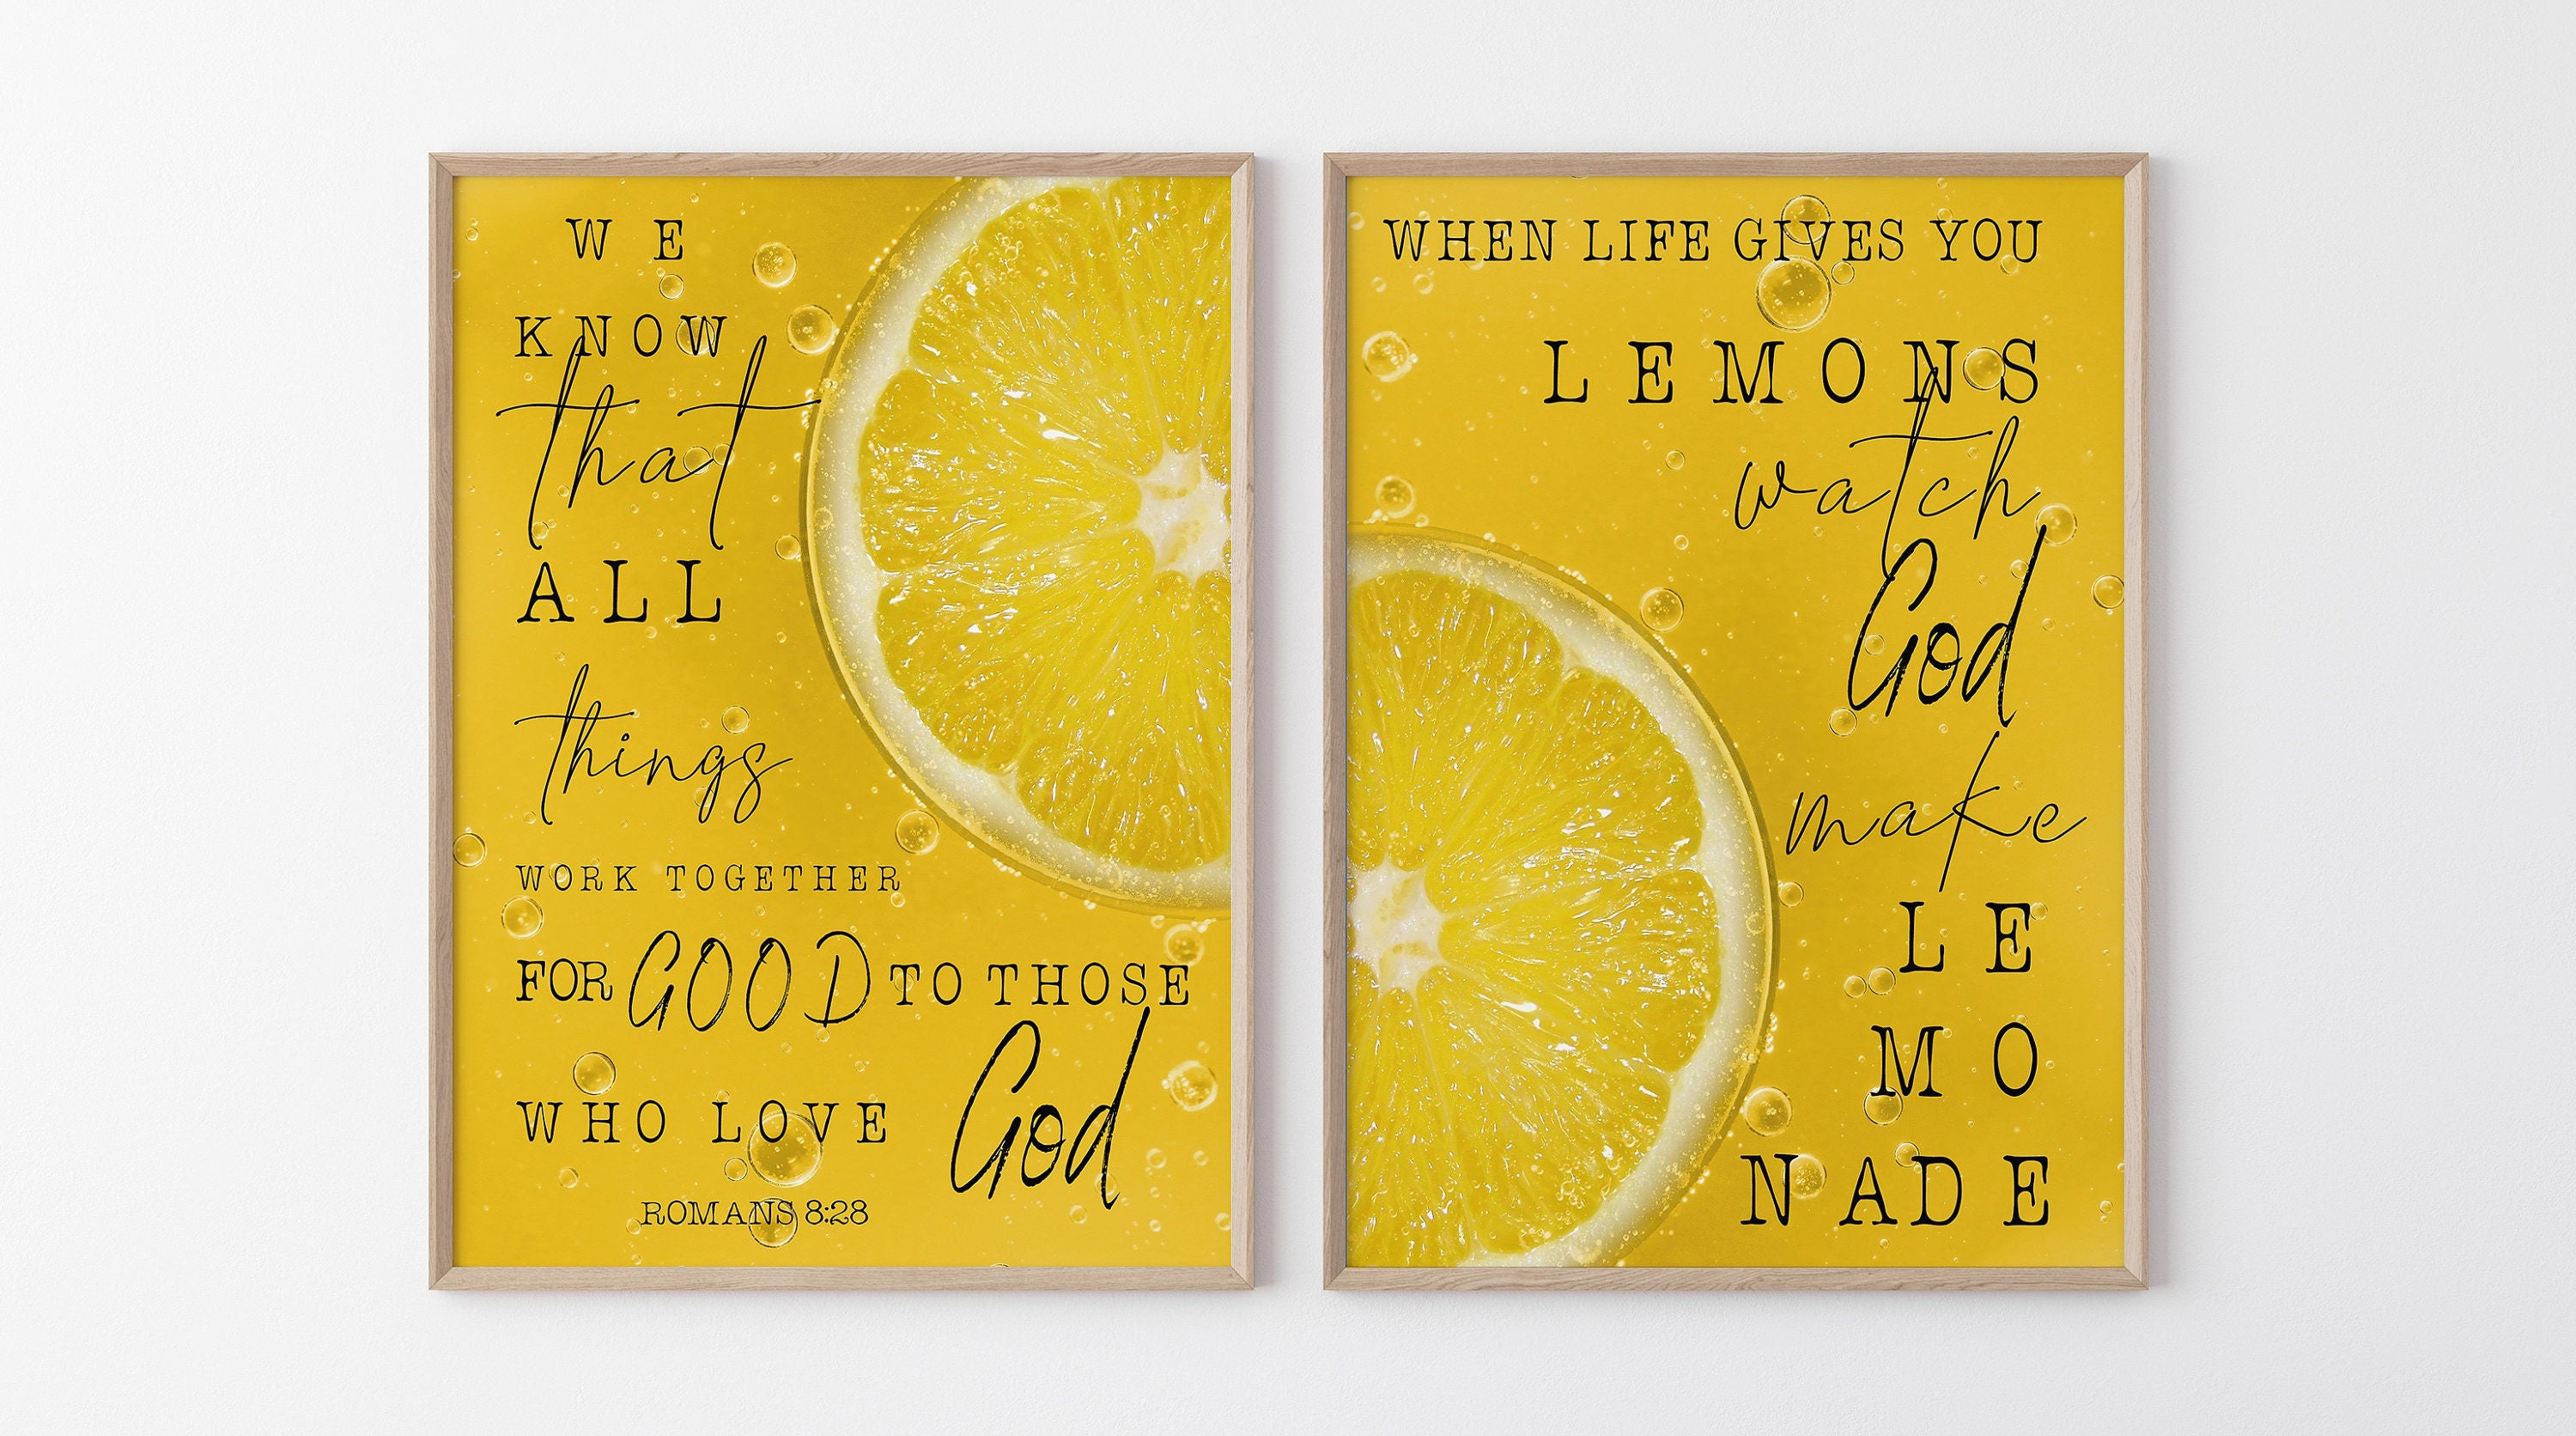 WE
KNOW
that
ALL
things
WORK TOGETHER
FOR GOOD TO THOSE
WHO LOVE God
ROMANS 8:28
WHEN LIFE GIVES YOU
LEMONS
watch
God
make
LE
MO
NADE